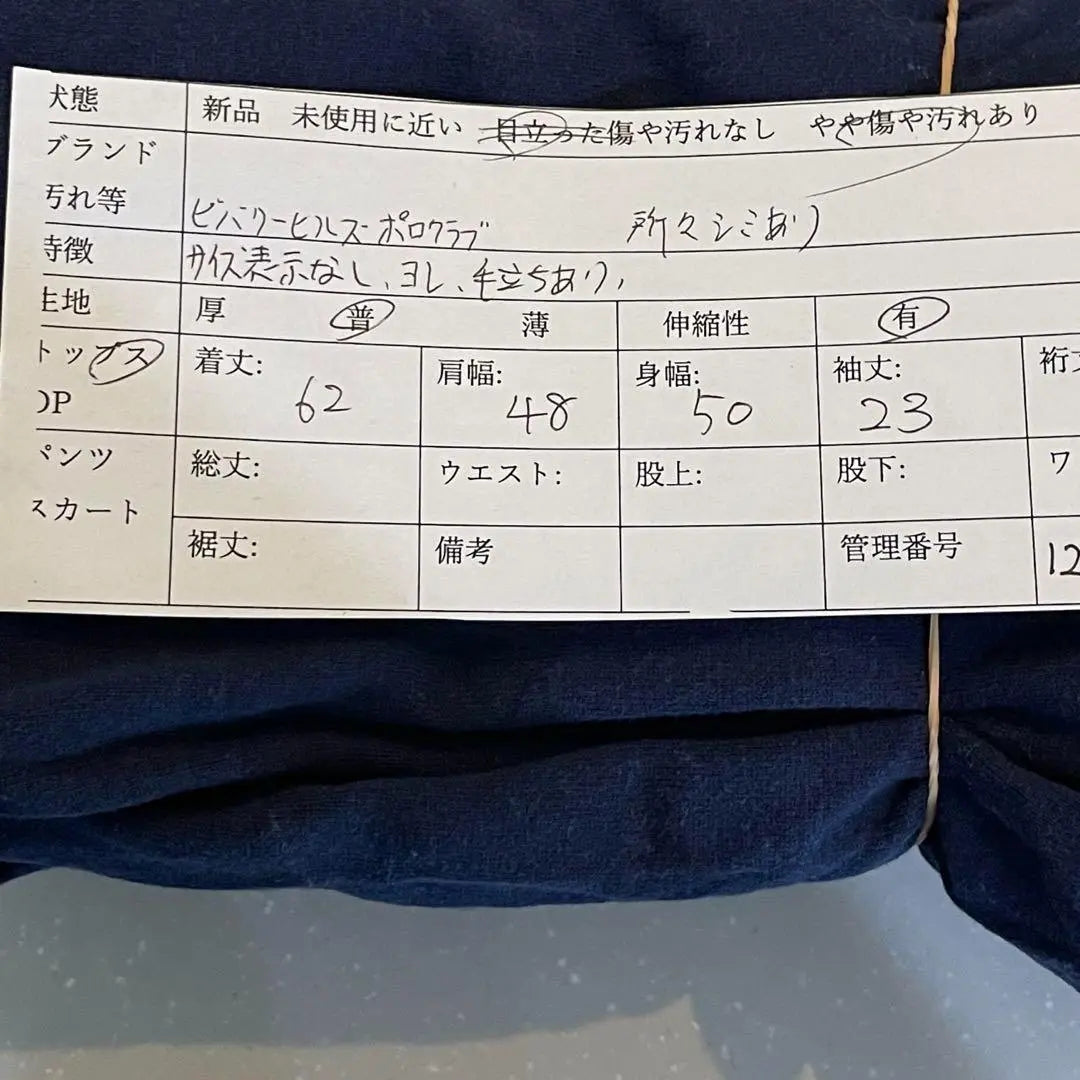 犬態 新品 未使用に近い 目立った傷や汚れなし やや傷や汚れあり
ブランド
汚れ等 ビバリーヒルズポロクラブ 所々シミあり
特徴 サイズ表示なし、ヨレ、毛立ちあり、
生地 厚 普 薄 伸縮性 有
トップス 着丈: 62 肩幅: 48 身幅: 50 袖丈: 23 裄丈
OP
パンツ 総丈: ウエスト: 股上: 股下: ワ
スカート
裾丈: 備考 管理番号 12